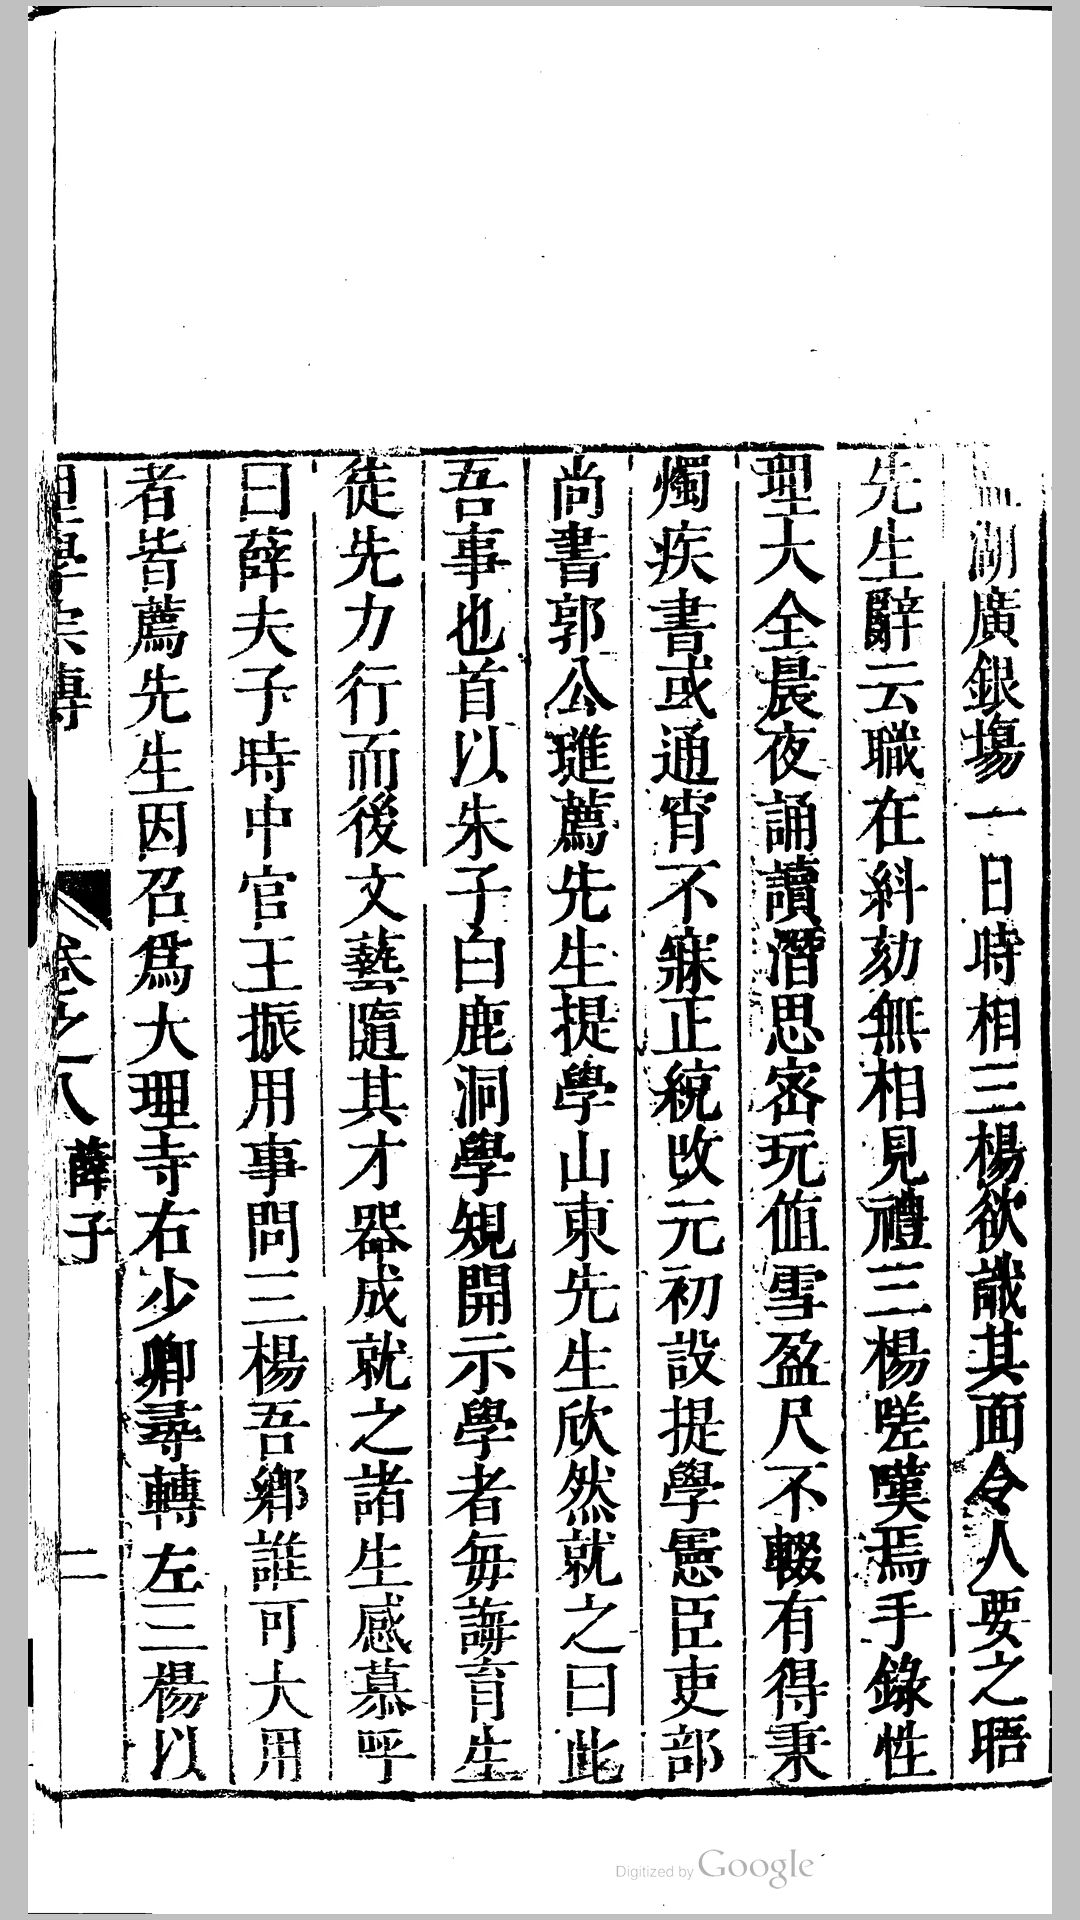 監湖廣銀塲一日時相三楊欲識其面令人要之晤
先生辭云職在糾劾無相見禮三楊嗟嘆焉手錄性
理大全晨夜誦讀潛思密玩値雪盈尺不輟有得秉
燭疾書或通宵不寐正統改元初設提學憲臣吏部
尚書郭公璡薦先生提學山東先生欣然就之曰此
吾事也首以朱子白鹿洞學規開示學者每誨育生
徒先力行而後文藝隨其才器成就之諸生感慕呼
曰薛夫子時中官王振用事問三楊吾鄉誰可大用
者皆薦先生因召爲大理寺右少卿尋轉左三楊以
理學宗傳 卷之八 薛子 二
Digitized by Google